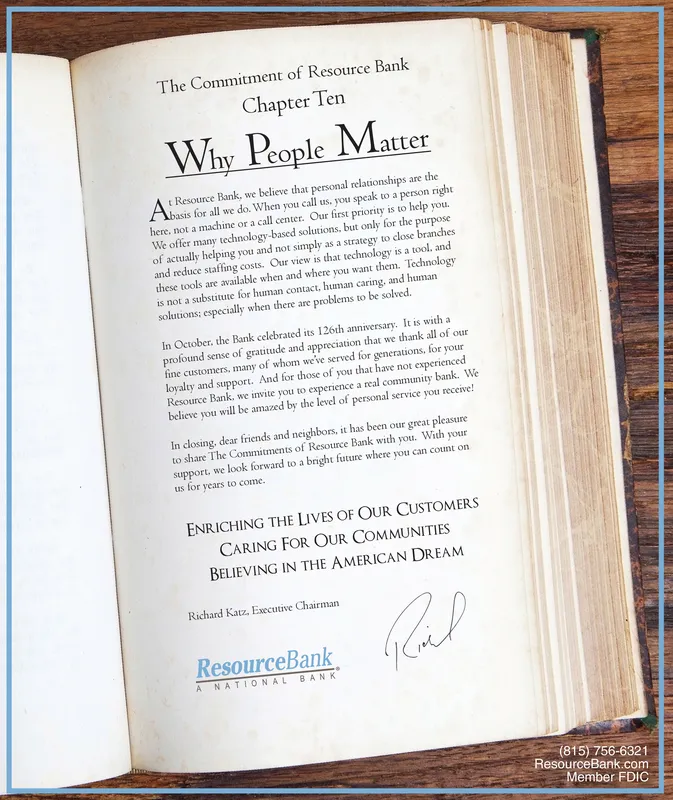 The Commitment of Resource Bank
Chapter Ten
Why People Matter
At Resource Bank, we believe that personal relationships are the
basis for all we do. When you call us, you speak to a person right
here, not a machine or a call center. Our first priority is to help you.
We offer many technology-based solutions, but only for the purpose
of actually helping you and not simply as a strategy to close branches
and reduce staffing costs. Our view is that technology is a tool, and
these tools are available when and where you want them. Technology
is not a substitute for human contact, human caring, and human
solutions; especially when there are problems to be solved.
In October, the Bank celebrated its 126th anniversary. It is with a
profound sense of gratitude and appreciation that we thank all of our
fine customers, many of whom we've served for generations, for your
loyalty and support. And for those of you that have not experienced
Resource Bank, we invite you to experience a real community bank. We
believe you will be amazed by the level of personal service you receive!
In closing, dear friends and neighbors, it has been our great pleasure
to share The Commitments of Resource Bank with you. With your
support, we look forward to a bright future where you can count on
us for years to come.
Enriching the Lives of Our Customers
Caring For Our Communities
Believing in the American Dream
Richard Katz, Executive Chairman
Rich
ResourceBank®
A NATIONAL BANK
(815) 756-6321
ResourceBank.com
Member FDIC